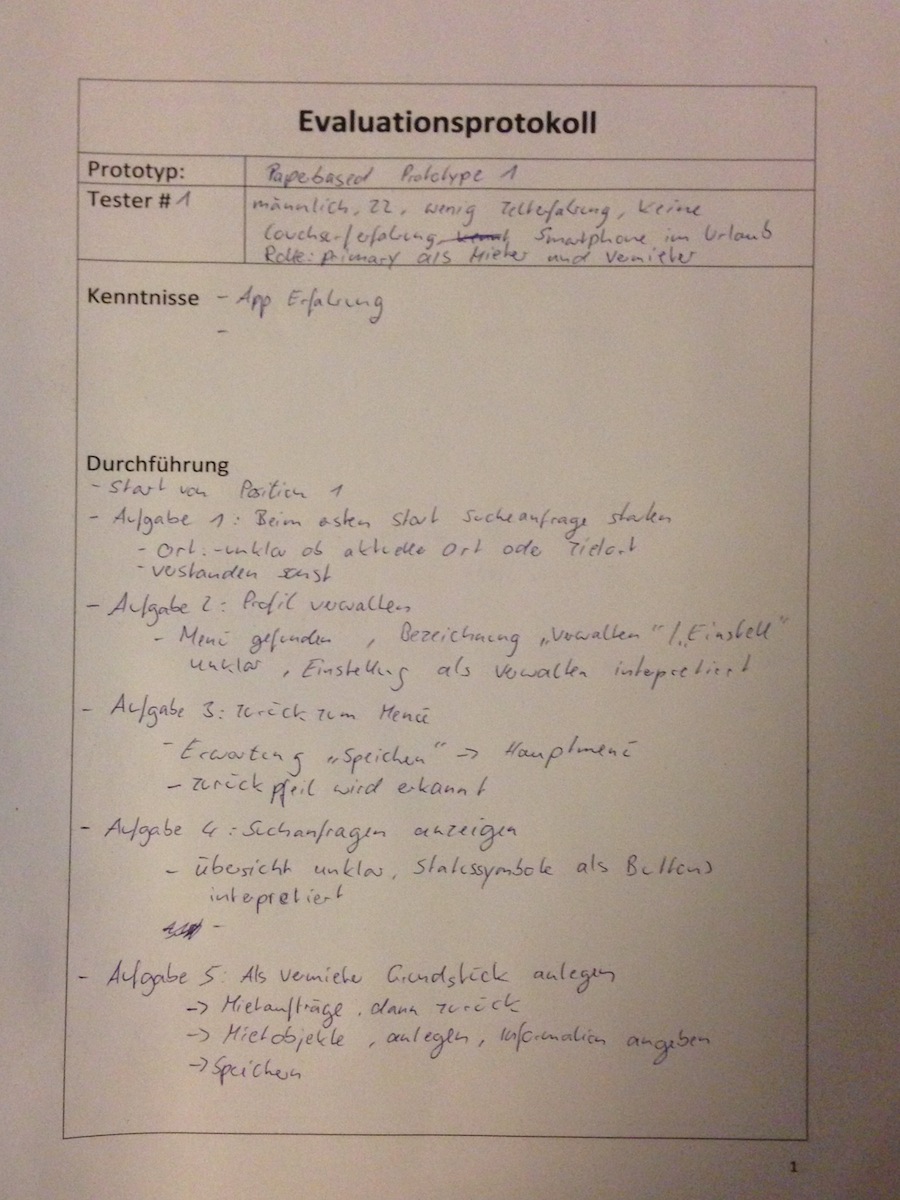 Evaluationsprotokoll
Prototyp: Paperbased Prototype 1
Tester # 1 männlich, 22, wenig Zelterfahrung, keine
Couchsurferfahrung, Smartphone im Urlaub
Rolle: primary als Mieter und Vermieter
Kenntnisse - App Erfahrung
-
Durchführung
- Start von Position 1
- Aufgabe 1: Beim ersten Start Suchanfrage starten
- Ort: - unklar ob aktueller Ort oder Zielort
- verstanden sonst
- Aufgabe 2: Profil verwalten
- Menü gefunden, Bezeichnung „Verwalten“ / „Einstell“
unklar, Einstellung als verwalten interpretiert
- Aufgabe 3: zurück zum Menü
- Erwartung „Speichern“ -> Hauptmenü
- Zurückpfeil wird erkannt
- Aufgabe 4: Suchanfragen anzeigen
- Übersicht unklar, Statussymbole als Buttons
interpretiert
-
- Aufgabe 5: Als Vermieter Grundstück anlegen
-> Mietaufträge, dann zurück
-> Mietobjekte, anlegen, Information angeben
-> Speichern
1